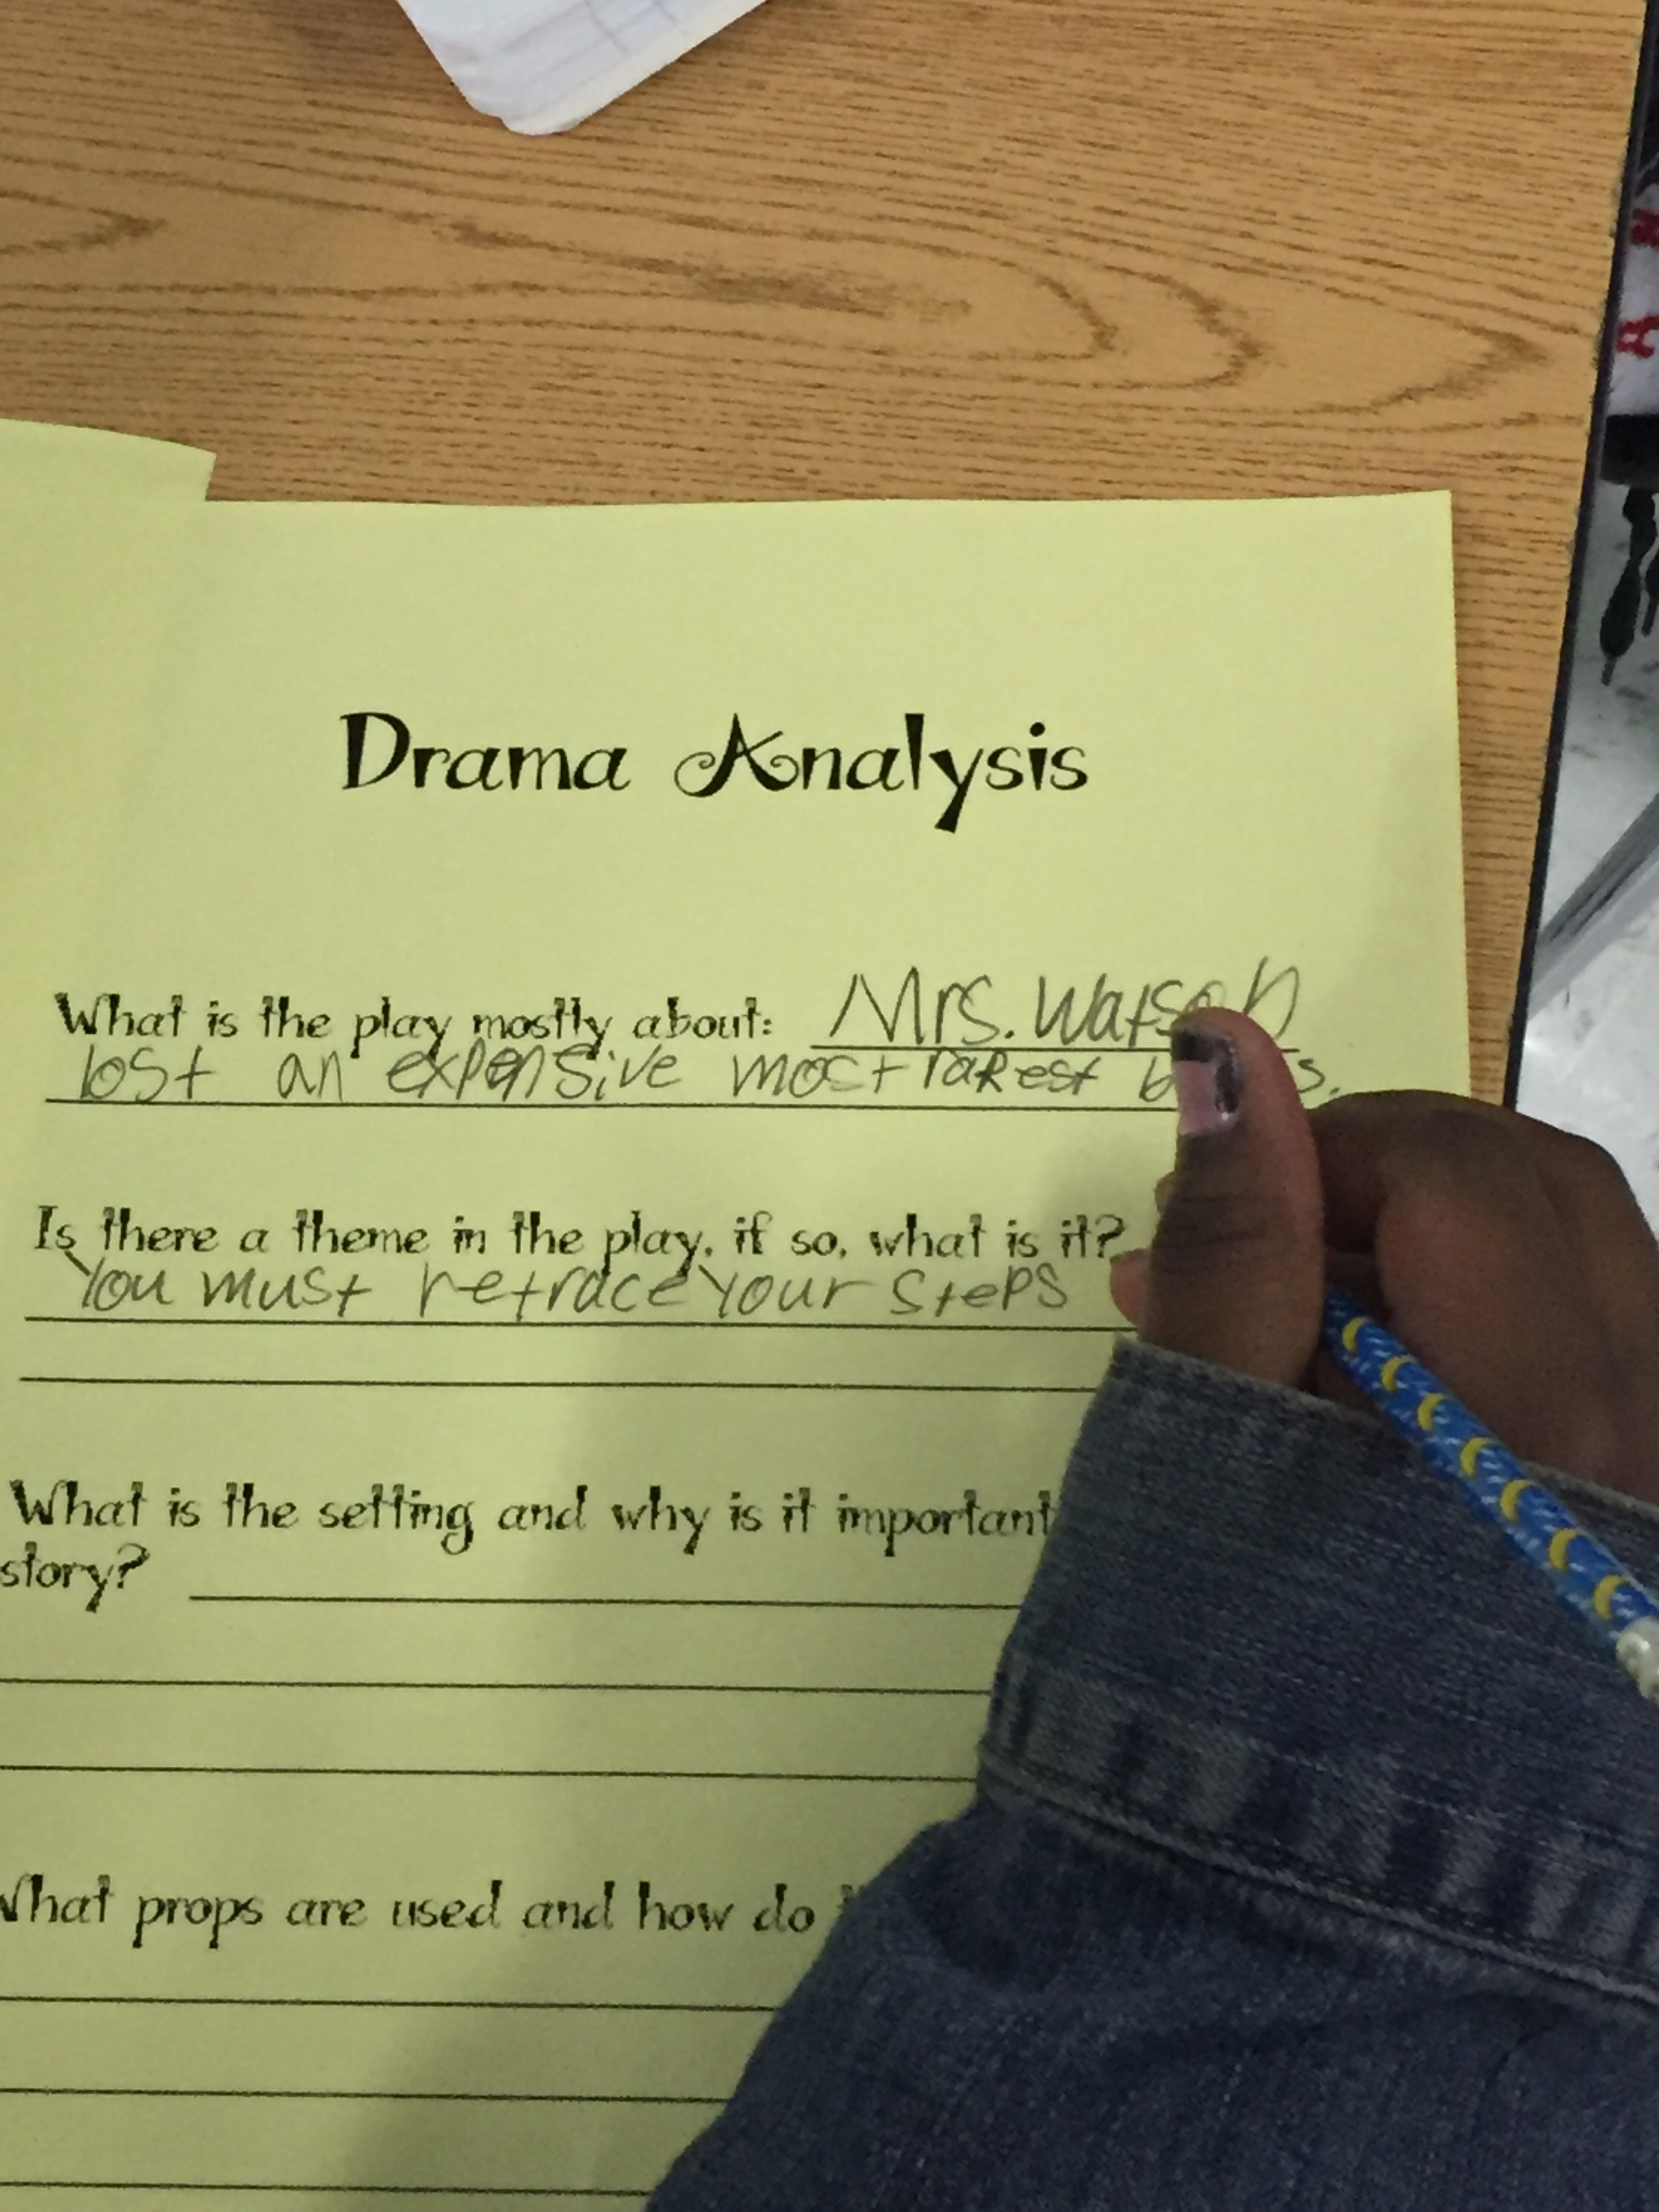 Drama Analysis
What is the play mostly about: Mrs. Watson
lost an expensive most rarest
Is there a theme in the play, if so, what is it?
You must retrace your steps
What is the setting and why is it important
story?
What props are used and how do